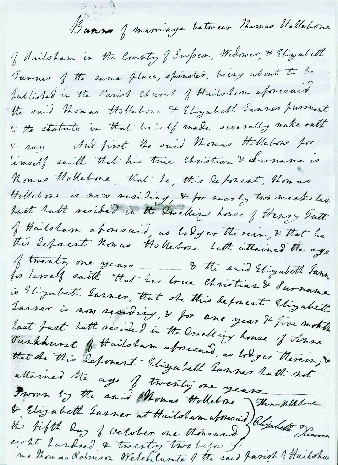 Banns of marriage between Thomas Hollebone
of Hailsham in the County of Sussex, Widower, & Elizabeth
Turner of the same place, spinster, being about to be
published in the Parish Church of Hailsham aforesaid
the said Thomas Hollebone & Elizabeth Turner pursuant
to the statute in that behalf made severally make oath
& say And first the said Thomas Hollebone for
himself saith that his true Christian & Surname is
Thomas Hollebone that he, this deponent, Thomas
Hollebone is now residing, & for nearly two weeks last
past hath resided in the Dwelling house of Henry
of Hailsham aforesaid, as lodger therein, & that he
this Deponent Thomas Hollebone hath attained the age
of twenty one years & the said Elizabeth Turner
for herself saith that her true Christian & Surname
is Elizabeth Turner, that she this deponent Elizabeth
Turner is now residing, & for one year & five months
last past hath resided in the Dwelling house of
Tunkhurst of Hailsham aforesaid, as lodger therein, &
that she this Deponent Elizabeth Turner hath not
attained the age of twenty one years
Sworn by the said Thomas Hollebone
& Elizabeth Turner at Hailsham aforesaid
the fifth day of October one thousand
eight hundred & twenty two before
me Thomas Robinson Welch Curate of the said parish of Hailsham
Thomas Hollebone
Elizabeth Turner